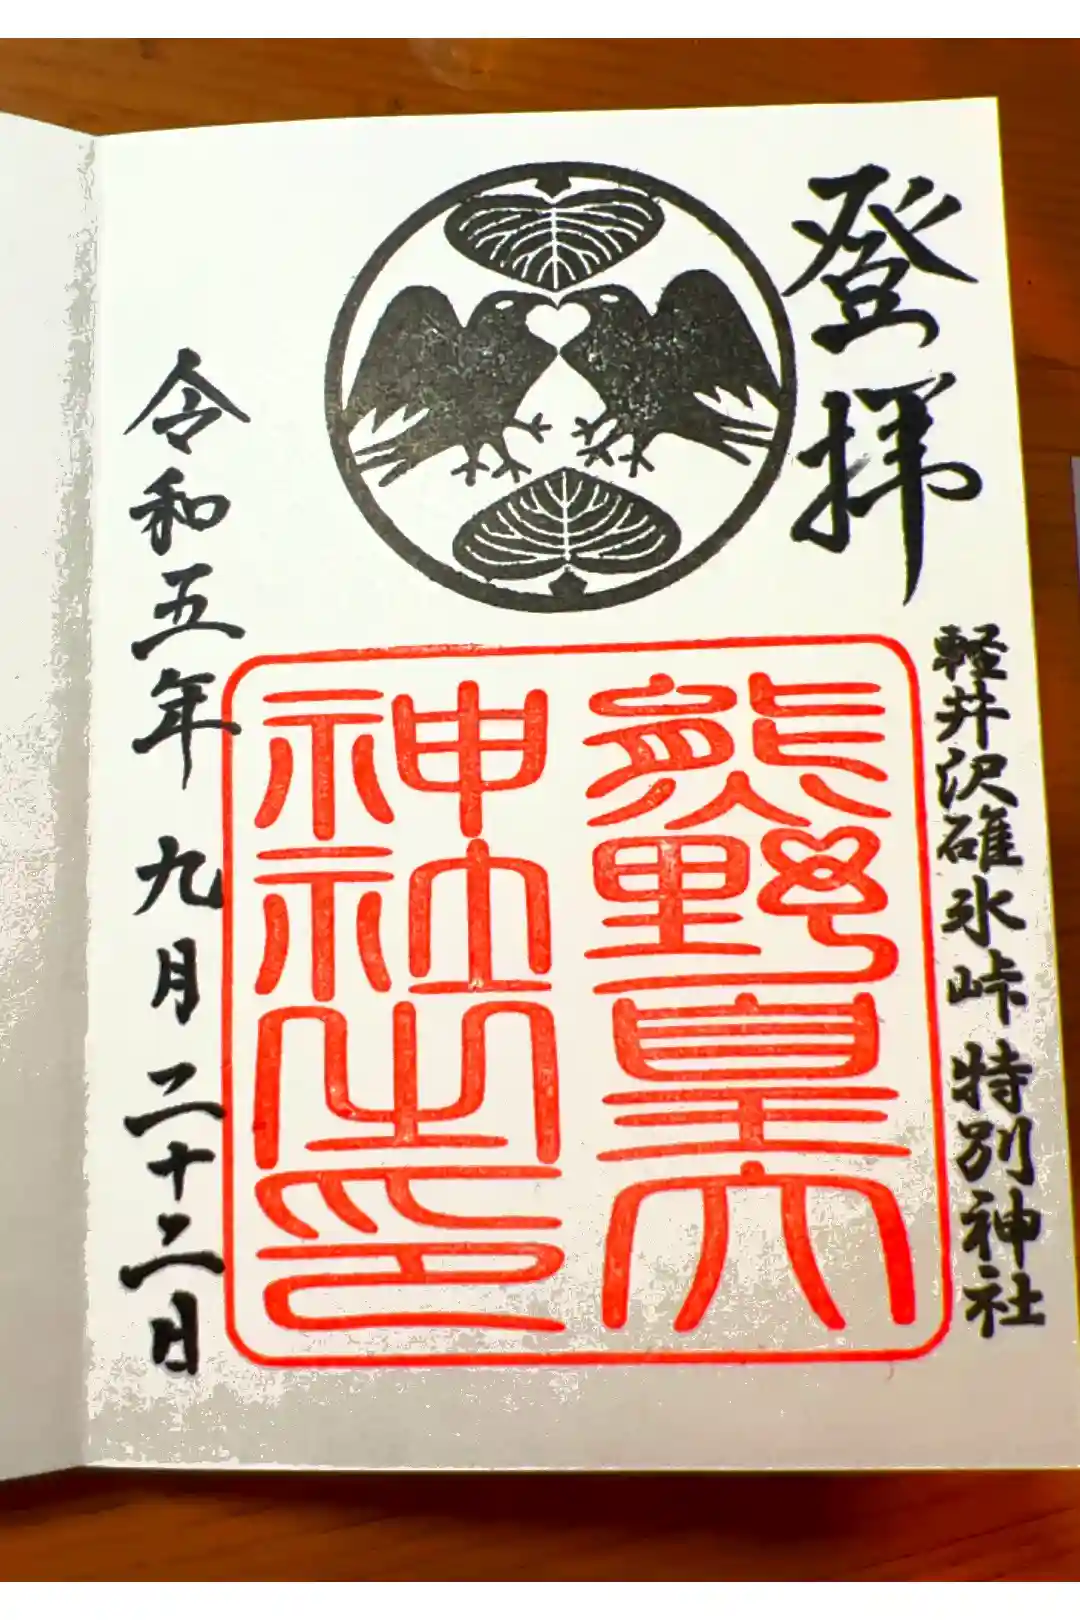 登拝
軽井沢碓氷峠 特別神社
熊野皇大
神社之印
令和五年 九月 二十二日